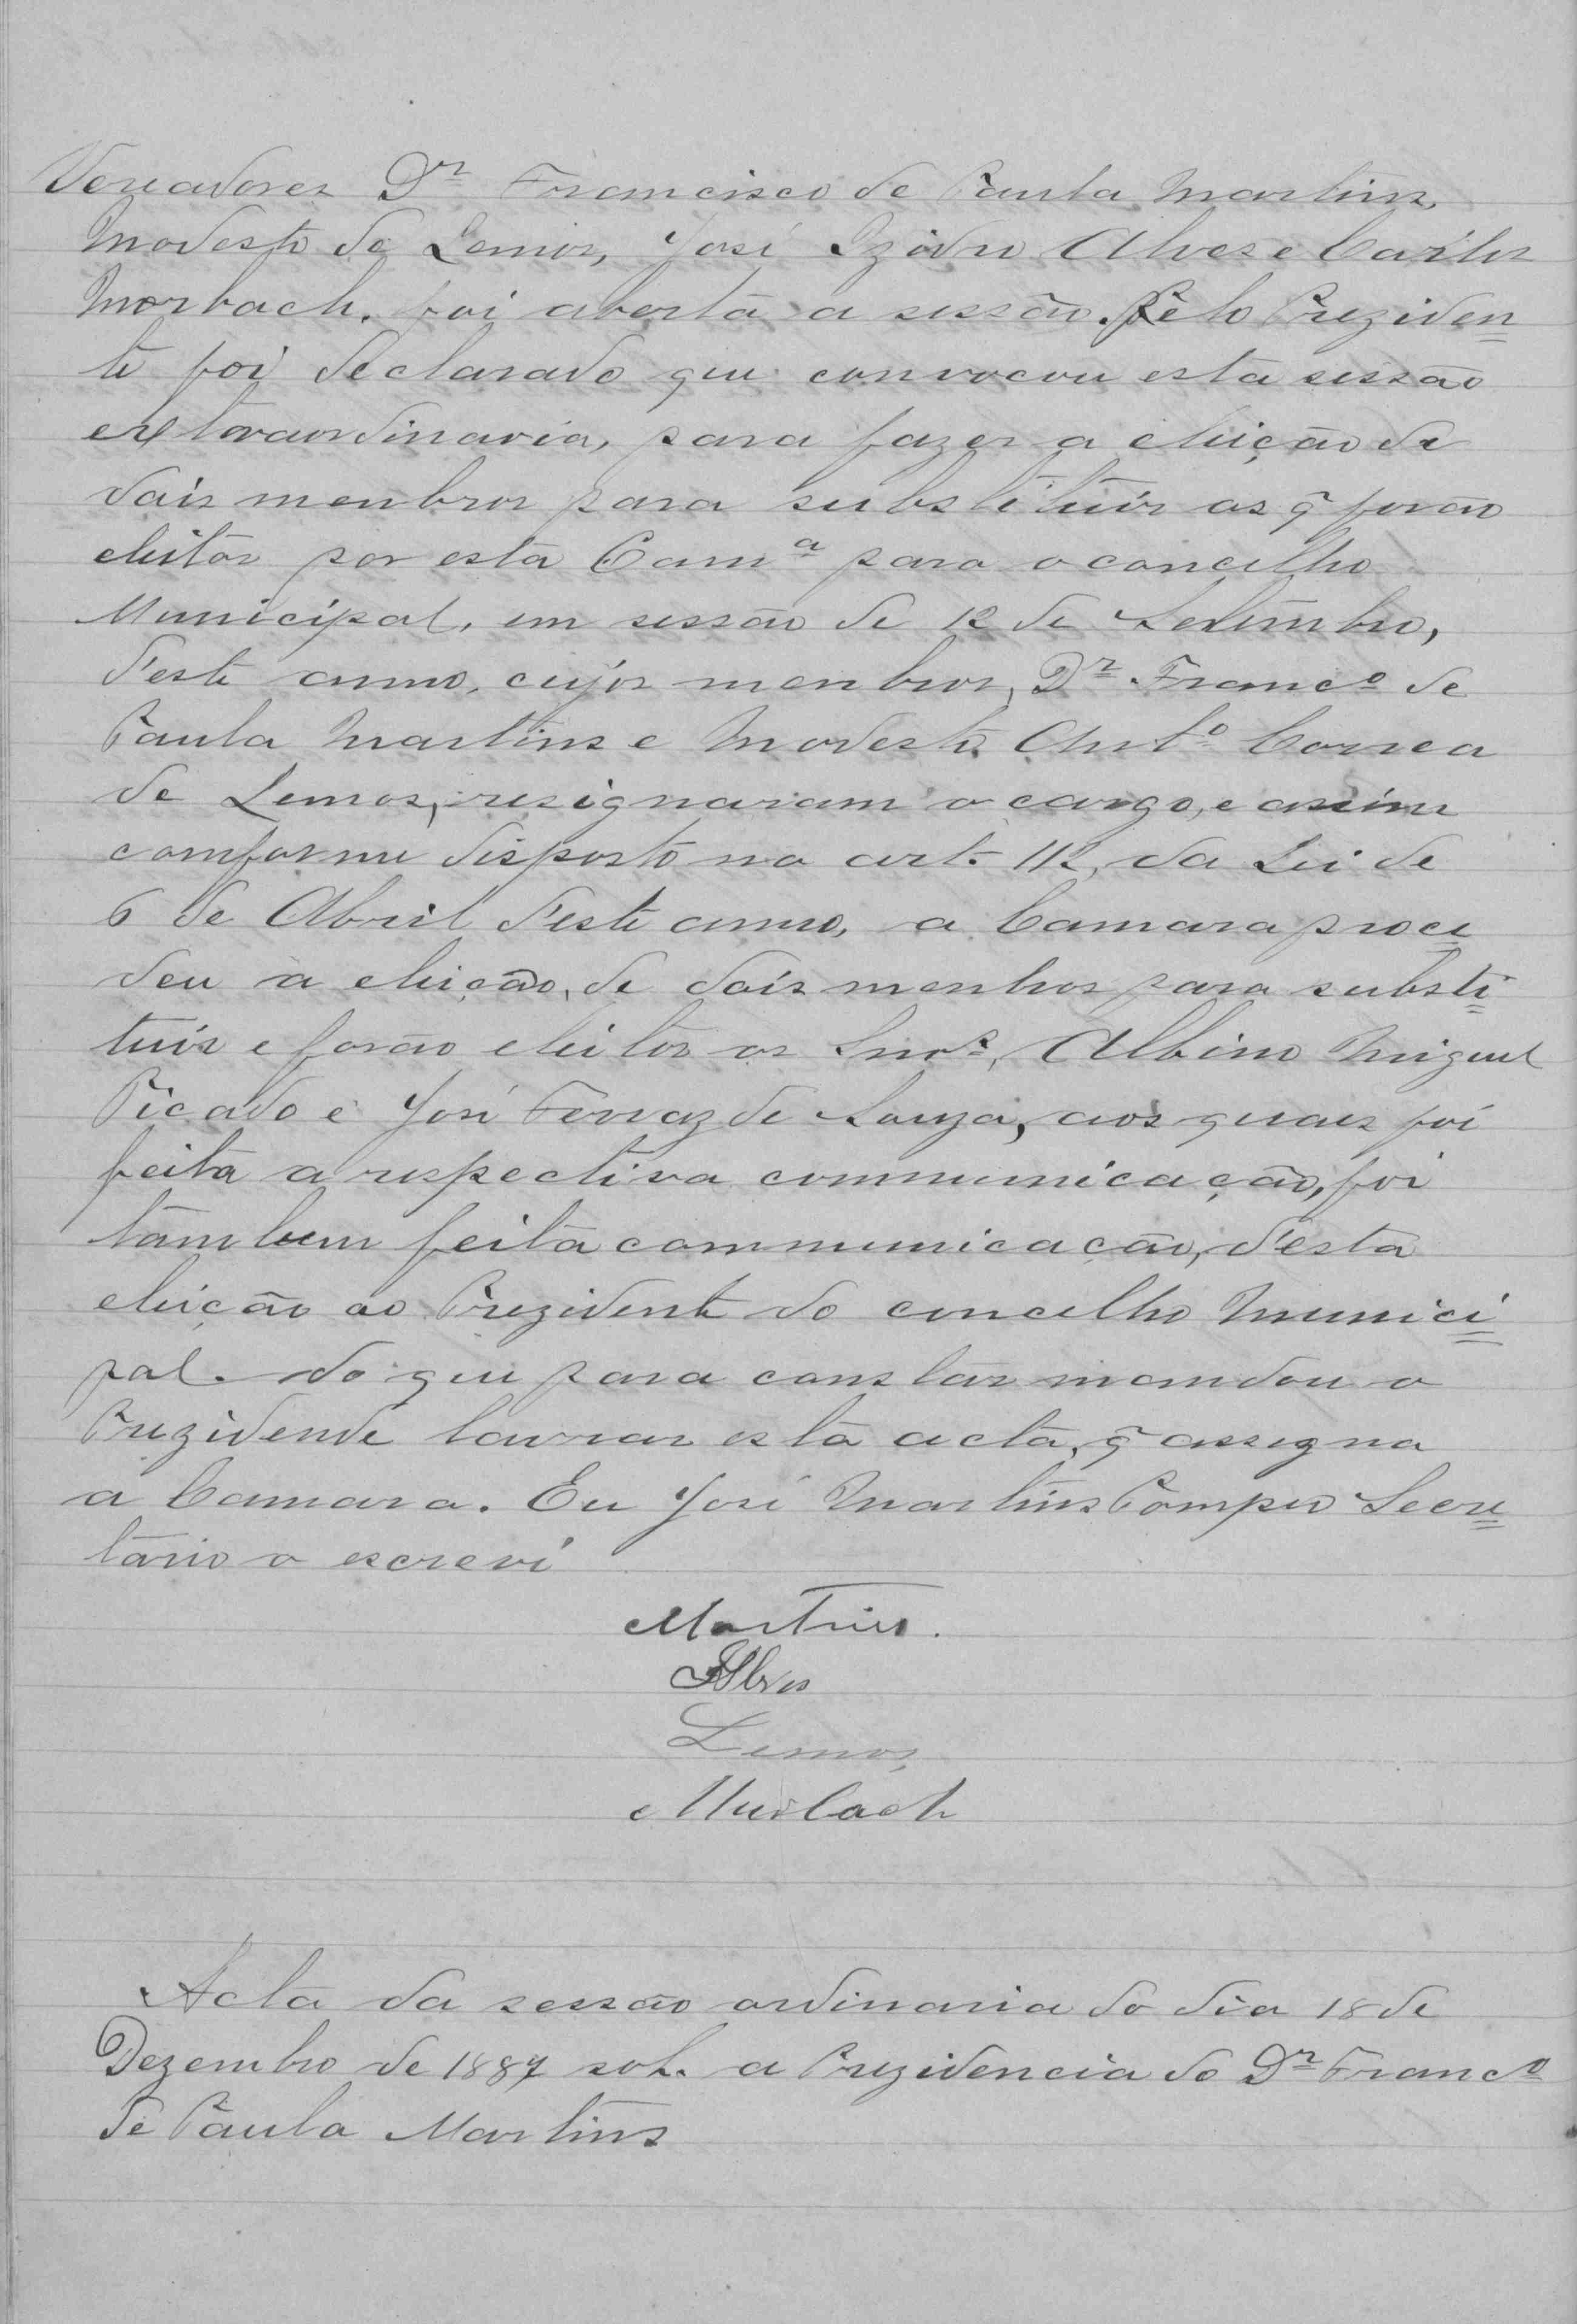 Vereadores Dr Francisco de Paula Martins,
Modesto de Lemos, José Izidro Alves e Carlos
Morbach. foi aberta a sessão. Pelo Preziden=
te foi declarado que convocou esta sessão
extraordinaria, para fazer a eleição de
dois menbros para substituir os q̃ forão
eleitos por esta Camª para o concelho
Municipal, em sessão de 12 de Setembro,
d'este anno, cujos menbros, Dr Francº de
Paula Martins e Modesto Antº Correa
de Lemos, resignaram o cargo, e assim
comforme disposto no art. 112, da Lei de
6 de Abril d'este anno, a Camara proce=
deu a eleição, de dois menbros para substi=
tuir e forão eleitos os Snrs, Albino Miguel
Picado e José Ferraz de Souza, aos quaes foi
feita a respectiva communicação, foi
tambem feita communicação, d'esta
eleição ao Prezidente do concelho Munici=
pal. do que para constar mandou o
Prezidende lavrar esta acta, q̃ assegna
a Camara. Eu José Martins Pompeo Secre=
tario o escrevi
Martins.
Alves
Lemos
Murbach
Acta da sessão ordinaria do dia 18 de
Dezembro de 1887 sob. a Prezidencia do Dr Francº
de Paula Martins